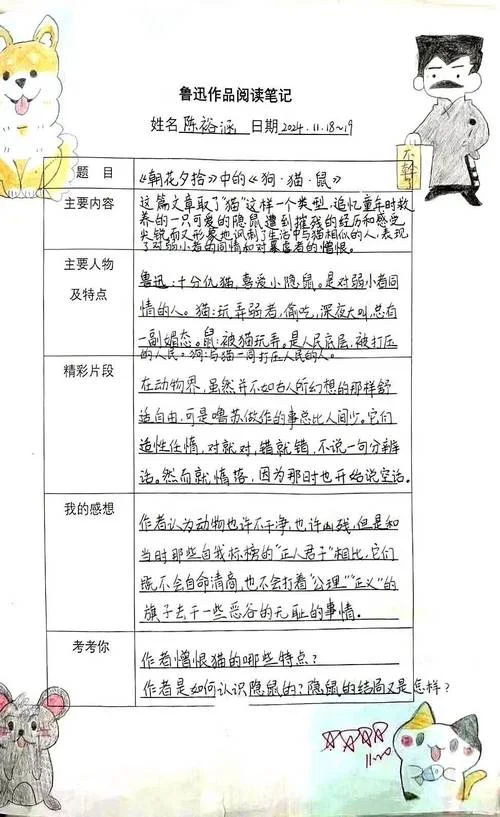 鲁迅作品阅读笔记
姓名 陈裕涵 日期 2024.11.18~19
不干了
题 目
《朝花夕拾》中的《狗·猫·鼠》
主要内容
这篇文章取了“猫”这样一个类型,追忆童年时救
养的一只可爱的隐鼠遭到摧残的经历和感受
尖锐而又形象地讽刺了生活中与猫相似的人,表现
了对弱小者的同情和对暴虐者的憎恨。
主要人物
及特点
鲁迅:十分仇猫,喜爱小隐鼠。是对弱小者同
情的人。猫:玩弄弱者,偷吃,深夜大叫,总有
一副媚态。鼠:被猫玩弄。是人民底层,被打压
的人民。狗:与猫一同打压人民的人。
精彩片段
在动物界,虽然并不如古人所幻想的那样舒
适自由,可是噜苏做作的事总比人间少。它们
适性任情,对就对,错就错,不说一句分辨
话。然而就堕落,因为那时也开始说空话。
我的感想
作者认为动物也许不干净,也许凶残,但是和
当时那些自我标榜的“正人君子”相比,它们
既不会自命清高,也不会打着“公理”“正义”的
旗子去干一些恶俗的无耻的事情.
考考你
作者憎恨猫的哪些特点?
作者是如何认识隐鼠的?隐鼠的结局又是怎样?
11.20